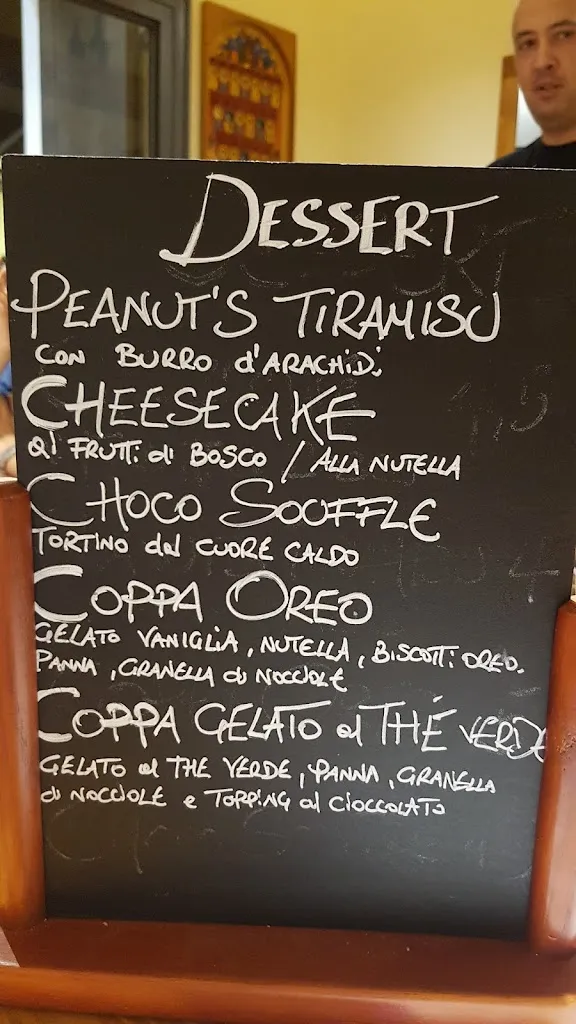 DESSERT
PEANUT'S TIRAMISU
CON BURRO d'ARACHIDi
CHEESECAKE
Ai FRUTTi di BOSCO / ALLA NUTELLA
CHOCO SOUFFLE
TORTINO dal CUORE CALDO
COPPA OREO
GELATO VANIGLIA, NUTELLA, BISCOTTi OREO.
PANNA, GRANELLA di NOCCIOLE
COPPA GELATO al THÉ VERDE
GELATO al THE VERDE, PANNA, GRANELLA
di NOCCIOLE e TOPPING al CIOCCOLATO